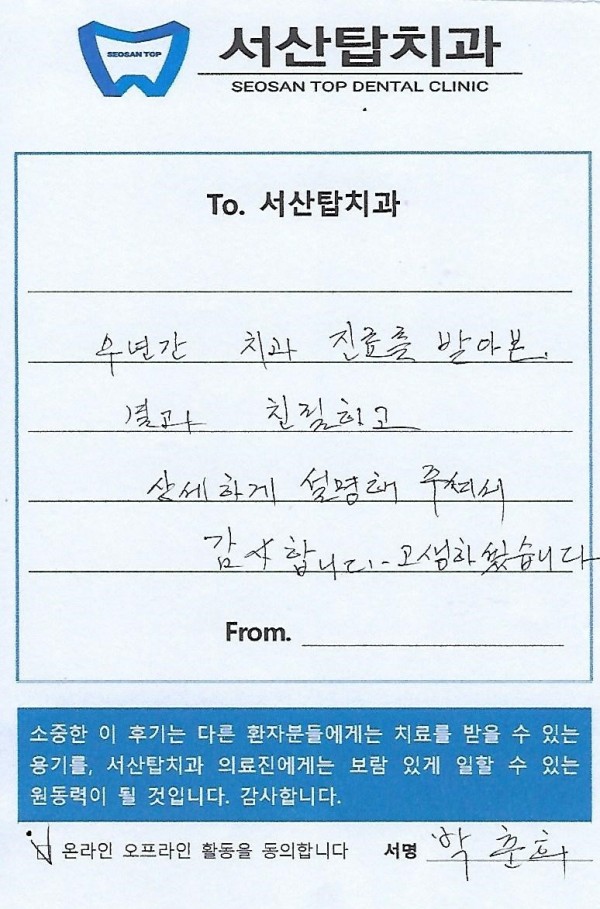 SEOSAN TOP
서산탑치과
SEOSAN TOP DENTAL CLINIC
To. 서산탑치과
수년간 치과 진료를 받아본.
결과 친절하고
상세하게 설명해 주셔서
감사합니다- 고생하셨습니다
From.
소중한 이 후기는 다른 환자분들에게는 치료를 받을 수 있는
용기를, 서산탑치과 의료진에게는 보람 있게 일할 수 있는
원동력이 될 것입니다. 감사합니다.
온라인 오프라인 활동을 동의합니다 서명 박춘화